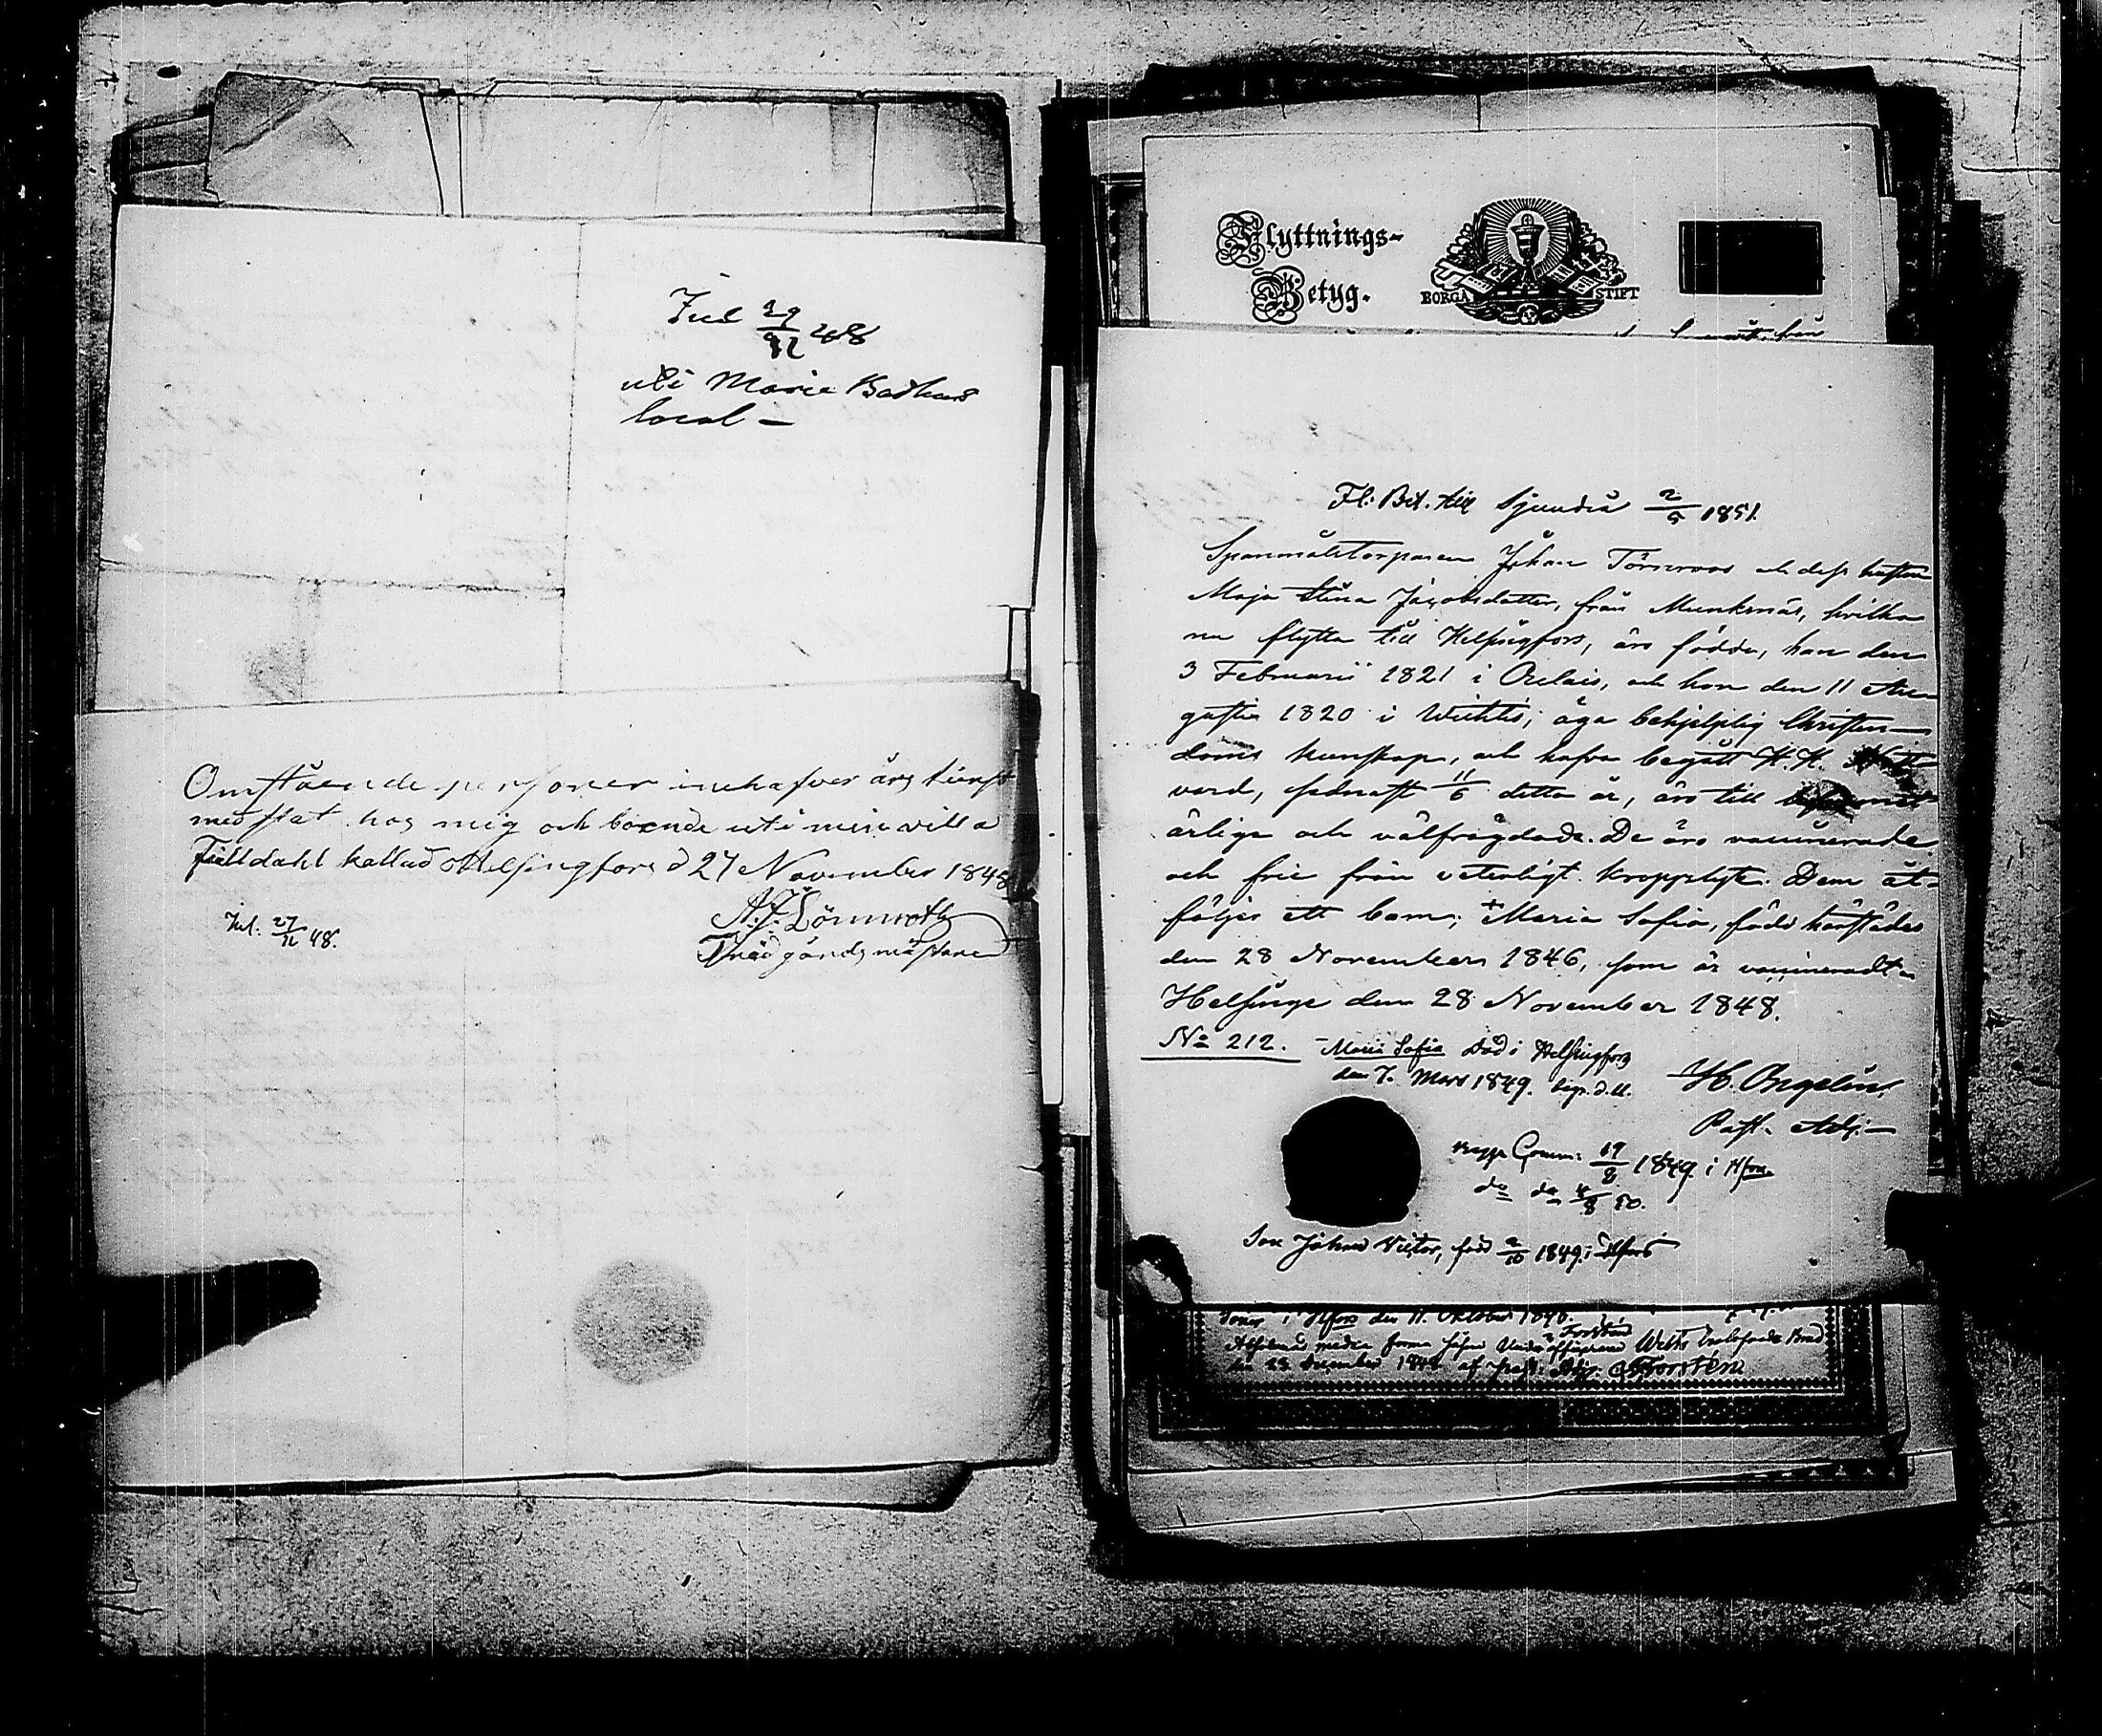 Inl 29/11 48
uti Marie Badhus
local –
Omstående personer inehafver års tienst
med stat hos mig och boende uti min villa
Fälldahl kallad Helsingfors d 27 November 1848
A.F. Lönnroth
Trädgårdsmästare
Inl. 27/11 48.
Flyttnings-
Betyg.
BORGÅ STIFT
Fl: Bet. till Sjundeå 2/5 1851.
Spanmålstorparen Johan Törnroos och dess hustru
Maja Stina Jacobsdotter, från Munksnäs, hvilka
nu flytta till Helsingfors, äro födde, han den
3 Februarii 1821 i Orelais, och hon den 11 Au-
gusti 1820 i Wichtis; äga behjelplig Christen-
doms kunskap, och hafva begått H. H. Natt-
vard, sednast 11/6 detta år, äro till
ärliga och välfrägdade. De äro vaccinerade
och frie från veterligt kroppslyte. Dem åt-
följer ett barn; + Maria Sofia, född härstädes
den 28 November 1846, som är vaccineradt.
Helsinge den 28 November 1848.
No 212.
Maria Sofia död i Helsingfors
den 7. Mars 1849.
H. Ongelin,
Past. Adj:
Begge Comm: 19/8 1849 i Hfors
do do 4/8 50.
Son Johan Victor, född 2/10 1849 i Hfors
i Hfors den 11. October 1848.
den 23 December 1848 af Past. Adj. Forstén